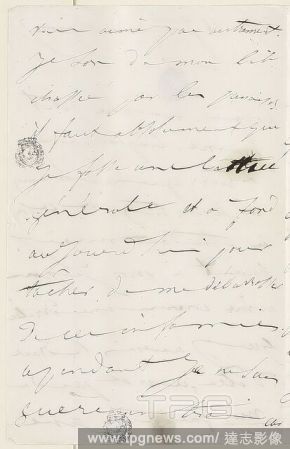 je sors de mon lit
chassée par les punaises
il faut absolument que
je fasse une battue
générale et à fond
aujourd'hui pour
tâcher de me débarasser
de ces infamies
cependant je ne sais
guère
TPG
www.tpgnews.com/ 達志影像